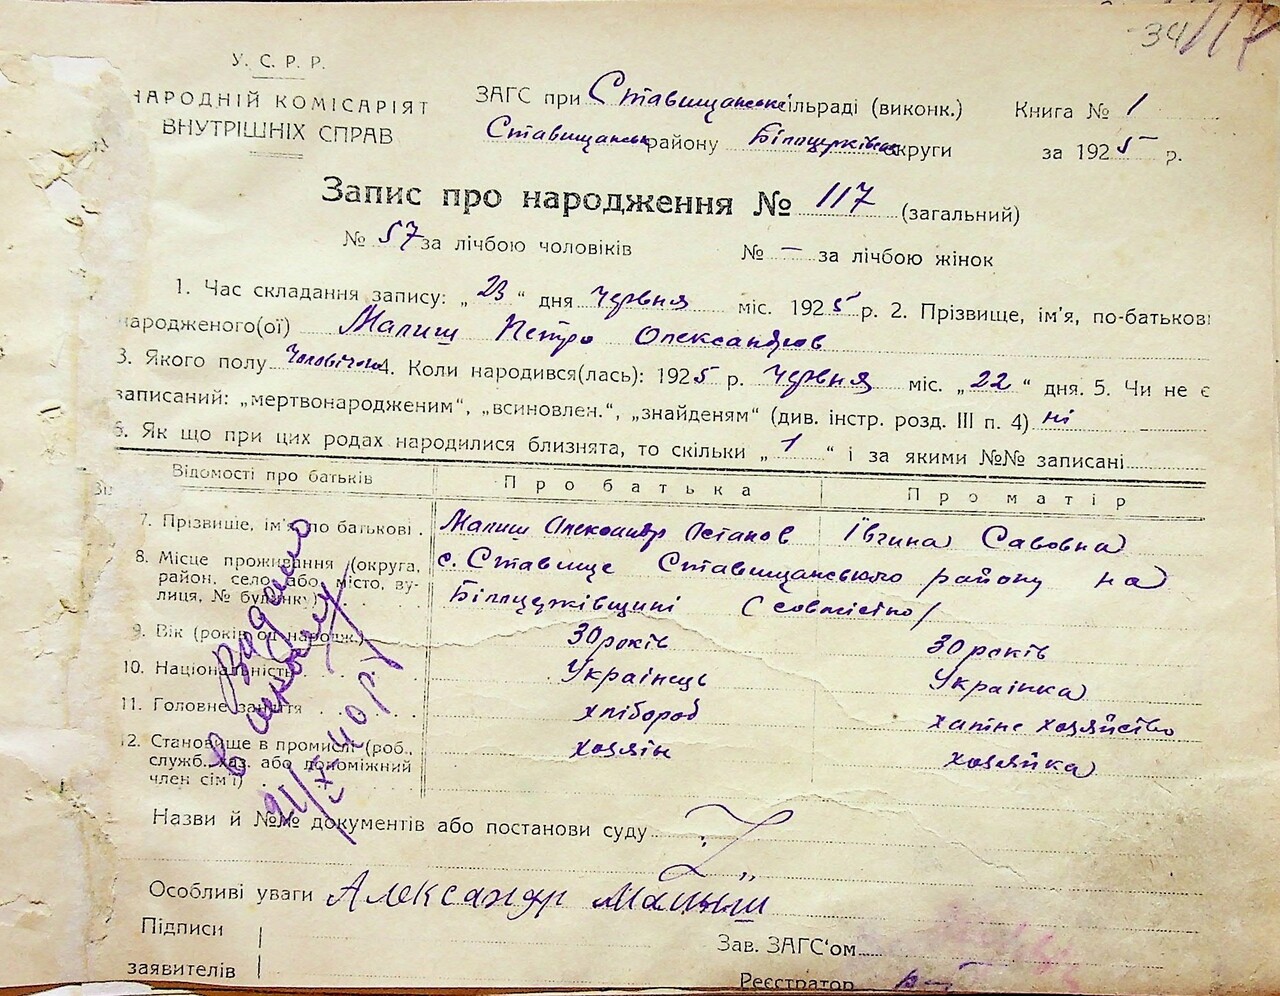 34 117
У. С. Р. Р.
НАРОДНІЙ КОМІСАРІЯТ
ВНУТРІШНІХ СПРАВ
ЗАГС при Ставищанськ сільраді (виконк.) Книга № 1
Ставищанськ району Білоцерківськ округи за 1925 р.
Запис про народження № 117 (загальний)
№ 57 за лічбою чоловіків № — за лічбою жінок
1. Час складання запису: „ 23 “ дня червня міс. 1925 р. 2. Прізвище, ім'я, по-батькові
народженого(ої) Малиш Петро Олександров
3. Якого полу чоловічого 4. Коли народився(лась): 1925 р. червня міс. „ 22 “ дня. 5. Чи не є
записаний: „мертвонародженим“, „всиновлен.“, „знайденям“ (див. інстр. розд. III п. 4) ні
6. Як що при цих родах народилися близнята, то скільки „ 1 “ і за якими №№ записані
Відомості про батьків Про батька Про матір
7. Прізвище, ім'я, по батькові. Малиш Олександр Остапов Ївгина Савовна
8. Місце проживання (округа, район, село або місто, вулиця, № будинку) с. Ставище Ставищанського району на
Білоцерківщині (совмістно)
9. Вік (років од народж.) 30 років 30 років
10. Національність Українець Українка
11. Головне заняття хлібороб хатнє хозяйство
12. Становище в промислі (роб., служб., хаз. або допоміжний член сім'ї) хозяїн хозяйка
Видано
21/XI 40 р.
Назви й №№ документів або постанови суду
Особливі уваги Александр Малиш
Підписи
заявителів
Зав. ЗАГС'ом
Реєстратор